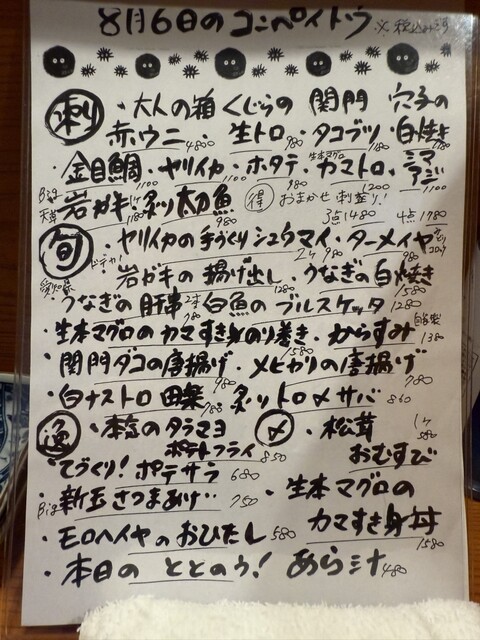 8月6日のコンペイトウ ※税込みです
刺り ・大人の箱 くじらの 関門 穴子の
赤ウニ 4800 ・生トロ 980 ・タコブツ 780 ・白焼き 1180
・金目鯛 1100 ・ヤリイカ 1100 ・ホタテ 980 ・生本マグロ カマトロ 1200 ・シマアジ 1100
Big 天草 岩ガキ 1ケ 1180 ・炙り太刀魚 980 得 おまかせ刺盛り! 3点1480 4点1780
旬 ・ヤリイカの手づくりシュウマイ 2ケ 980 ・ターメイヤ コロッケ
愛知県 ・岩ガキの揚げ出し 1280 ・うなぎの白焼き 1580
・うなぎの肝串 2本 780 ・白魚のブルスケッタ 1280
・生本マグロのカマすき身のり巻き 1580 ・からすみ 自家製 1380
・関門ダコの唐揚げ 980 ・メヒカリの唐揚げ 780
・白ナストロ田楽 788 ・炙りトロ〆サバ 860
逸 ・本気のタラマヨポテトフライ 850 〆 ・松茸おむすび 1ケ 580
・てづくり!ポテサラ 680
・Big 新玉さつまあげ 750 ・生本マグロの
・モロヘイヤのおひたし 580 カマすき身丼 1580
・本日のととのう! あら汁 480